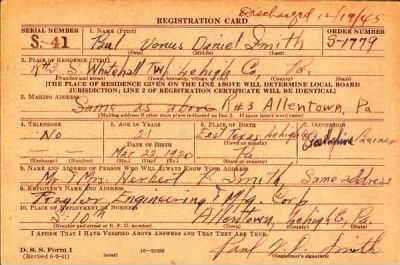 Discharged 12/19/45
REGISTRATION CARD
SERIAL NUMBER 1. NAME (Print) ORDER NUMBER
S-41 Paul Daniel Smith S-1779
(First) (Middle) (Last)
2. PLACE OF RESIDENCE (Print)
R#3 S. Whitehall Twp Lehigh Co, Pa.
(Number and street) (Town, township, village, or city) (County) (State)
[THE PLACE OF RESIDENCE GIVEN ON THE LINE ABOVE WILL DETERMINE LOCAL BOARD
JURISDICTION; LINE 2 OF REGISTRATION CERTIFICATE WILL BE IDENTICAL]
3. MAILING ADDRESS
Same as above R#3 Allentown, Pa
[Mailing address if other than place indicated on line 2. If same insert word same]
4. TELEPHONE 5. AGE IN YEARS 6. PLACE OF BIRTH 7. OCCUPATION
No 21 East Texas Lehigh Co
DATE OF BIRTH
Mar 22 1920 Pa
(Exchange) (Number) (Mo.) (Day) (Yr.) (State or country)
8. NAME AND ADDRESS OF PERSON WHO WILL ALWAYS KNOW YOUR ADDRESS
Mr. & Mrs. Herbert F. Smith, Same address
9. EMPLOYER'S NAME AND ADDRESS
Traylor Engineering & Mfg. Corp
10. PLACE OF EMPLOYMENT OR BUSINESS
S. 10th Allentown, Lehigh Co, Pa.
(Number and street or R. F. D. number) (Town) (County) (State)
I AFFIRM THAT I HAVE VERIFIED ABOVE ANSWERS AND THAT THEY ARE TRUE.
D. S. S. Form 1
(Revised 6-9-41) Paul Smith